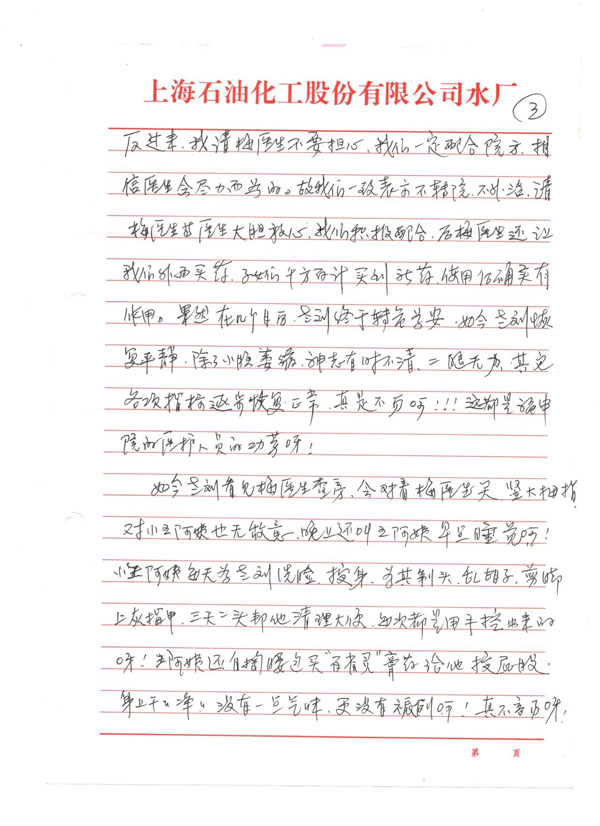 上海石油化工股份有限公司水厂
③
反过来,我请梅医生不要担心,我们一定配合院方,相
信医生会尽力而为的。故我们一致表示不转院,不外治,请
梅医生苗医生大胆放心,我们积极配合,后梅医生还让
我们外面买药,子女们千方百计买到新药,使用后确实有
作用。果然在几个月后,老刘终于转危为安,如今老刘恢
复平静,除了小脑萎缩,神志有时不清,二腿无力,其它
各项指标逐步恢复正常,真是不易呵!!!这都是
院的医护人员的功劳呀!
如今老刘看见梅医生查房,会对着梅医生笑,竖大拇指,
对小王阿姨也无敌意,晚上还叫王阿姨早点睡觉呵!
小王阿姨每天为老刘洗脸、擦身、为其剃头、刮胡子、剪脚
上灰指甲,三天二头帮他清理大便,每次都是用手挖出来的
呀!王阿姨还自掏腰包买"百雀灵"膏药给他擦屁股,
身上干干净净,没有一点气味,更没有褥疮呵!真不容易呀!
第 页